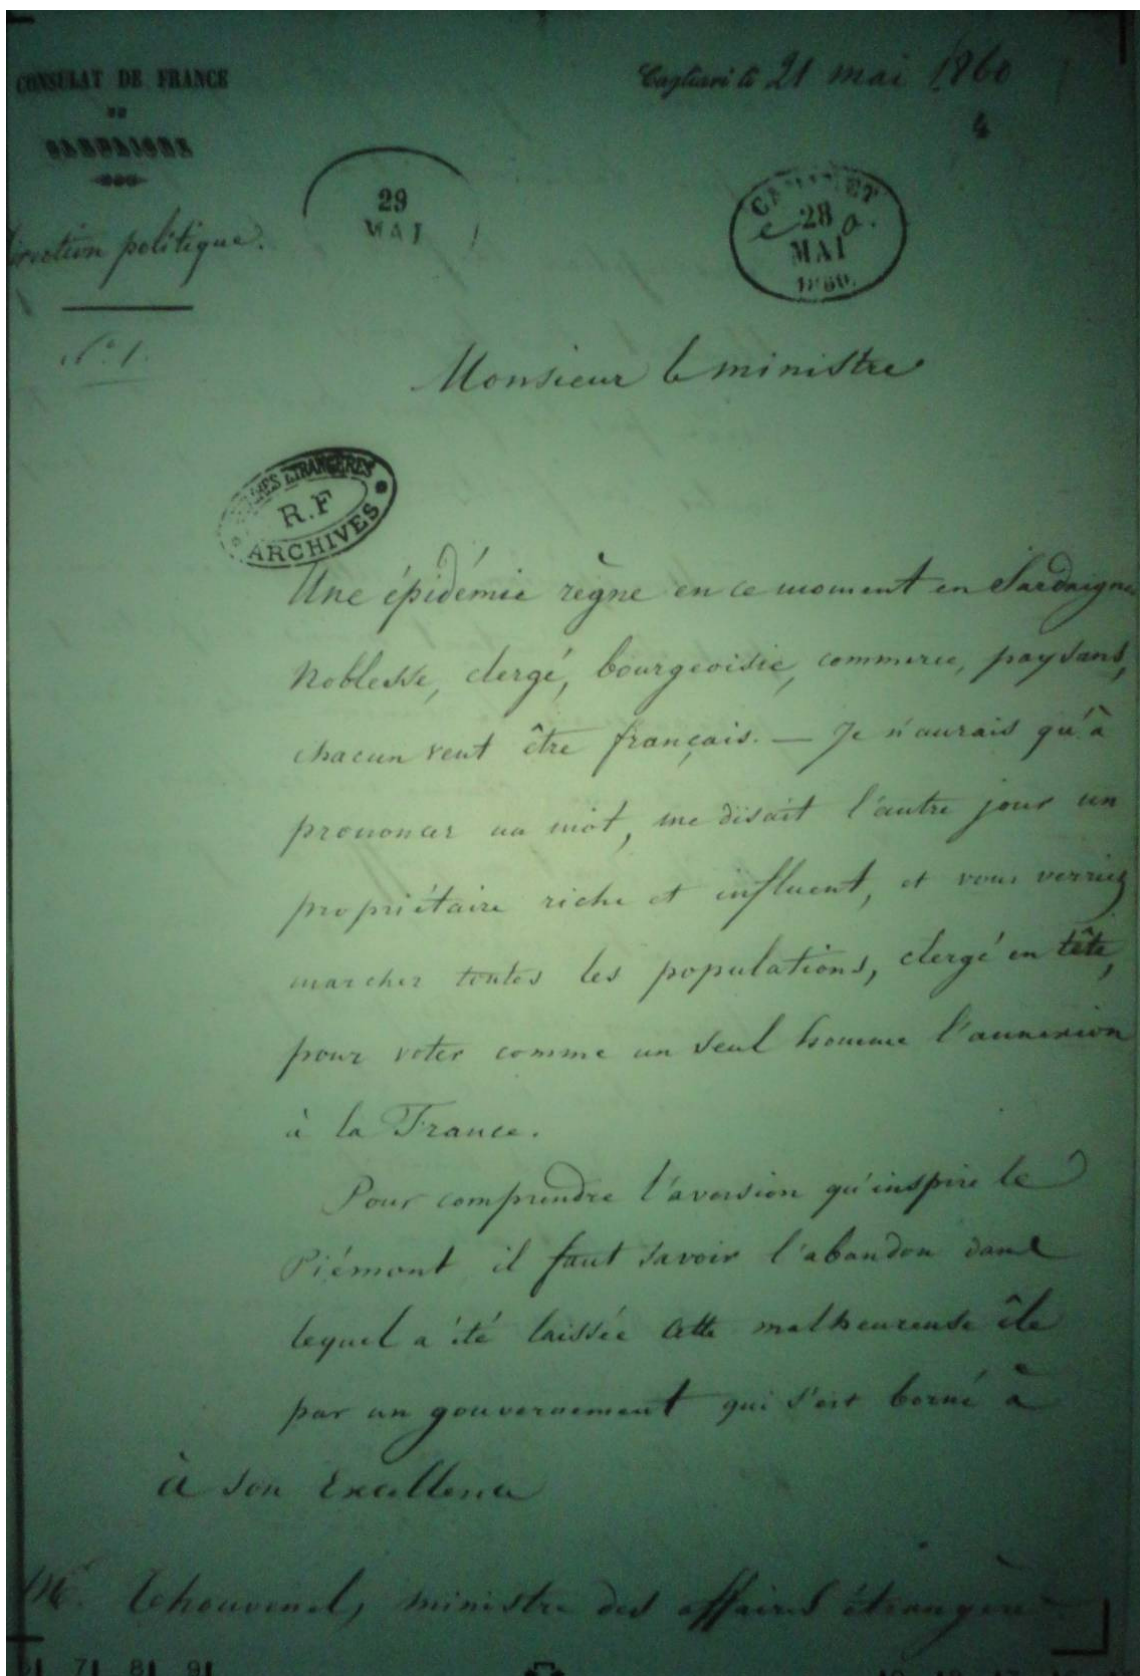 CONSULAT DE FRANCE
EN
SARDAIGNE
Cagliari le 21 mai 1860
4
29
MAI
CABINET
28
MAI
1860.
Direction politique.
N° 1.
Monsieur le ministre
AFFAIRES ETRANGERES
R.F
ARCHIVES
Une épidémie règne en ce moment en Sardaigne
Noblesse, clergé, bourgeoisie, commerce, paysans,
chacun veut être français. — Je n'aurais qu'à
prononcer un mot, me disait l'autre jour un
propriétaire riche et influent, et vous verriez
marcher toutes les populations, clergé en tête,
pour voter comme un seul homme l'annexion
à la France.
Pour comprendre l'aversion qu'inspire le
Piémont il faut savoir l'abandon dans
lequel a été laissée cette malheureuse île
par un gouvernement qui s'est borné à
à son Excellence
M. Thouvenel, ministre des affaires étrangères
7 8 9